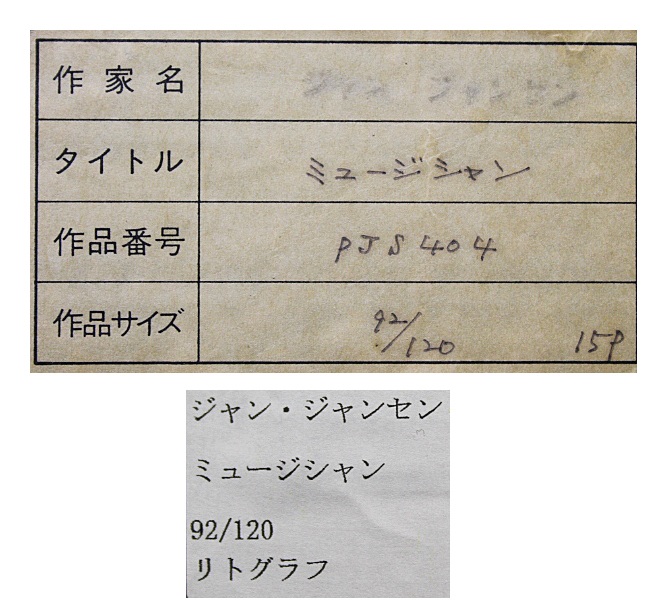 作家名 ジャン ジャンセン
タイトル ミュージシャン
作品番号 PJS404
作品サイズ 92/120 15P
ジャン・ジャンセン
ミュージシャン
92/120
リトグラフ